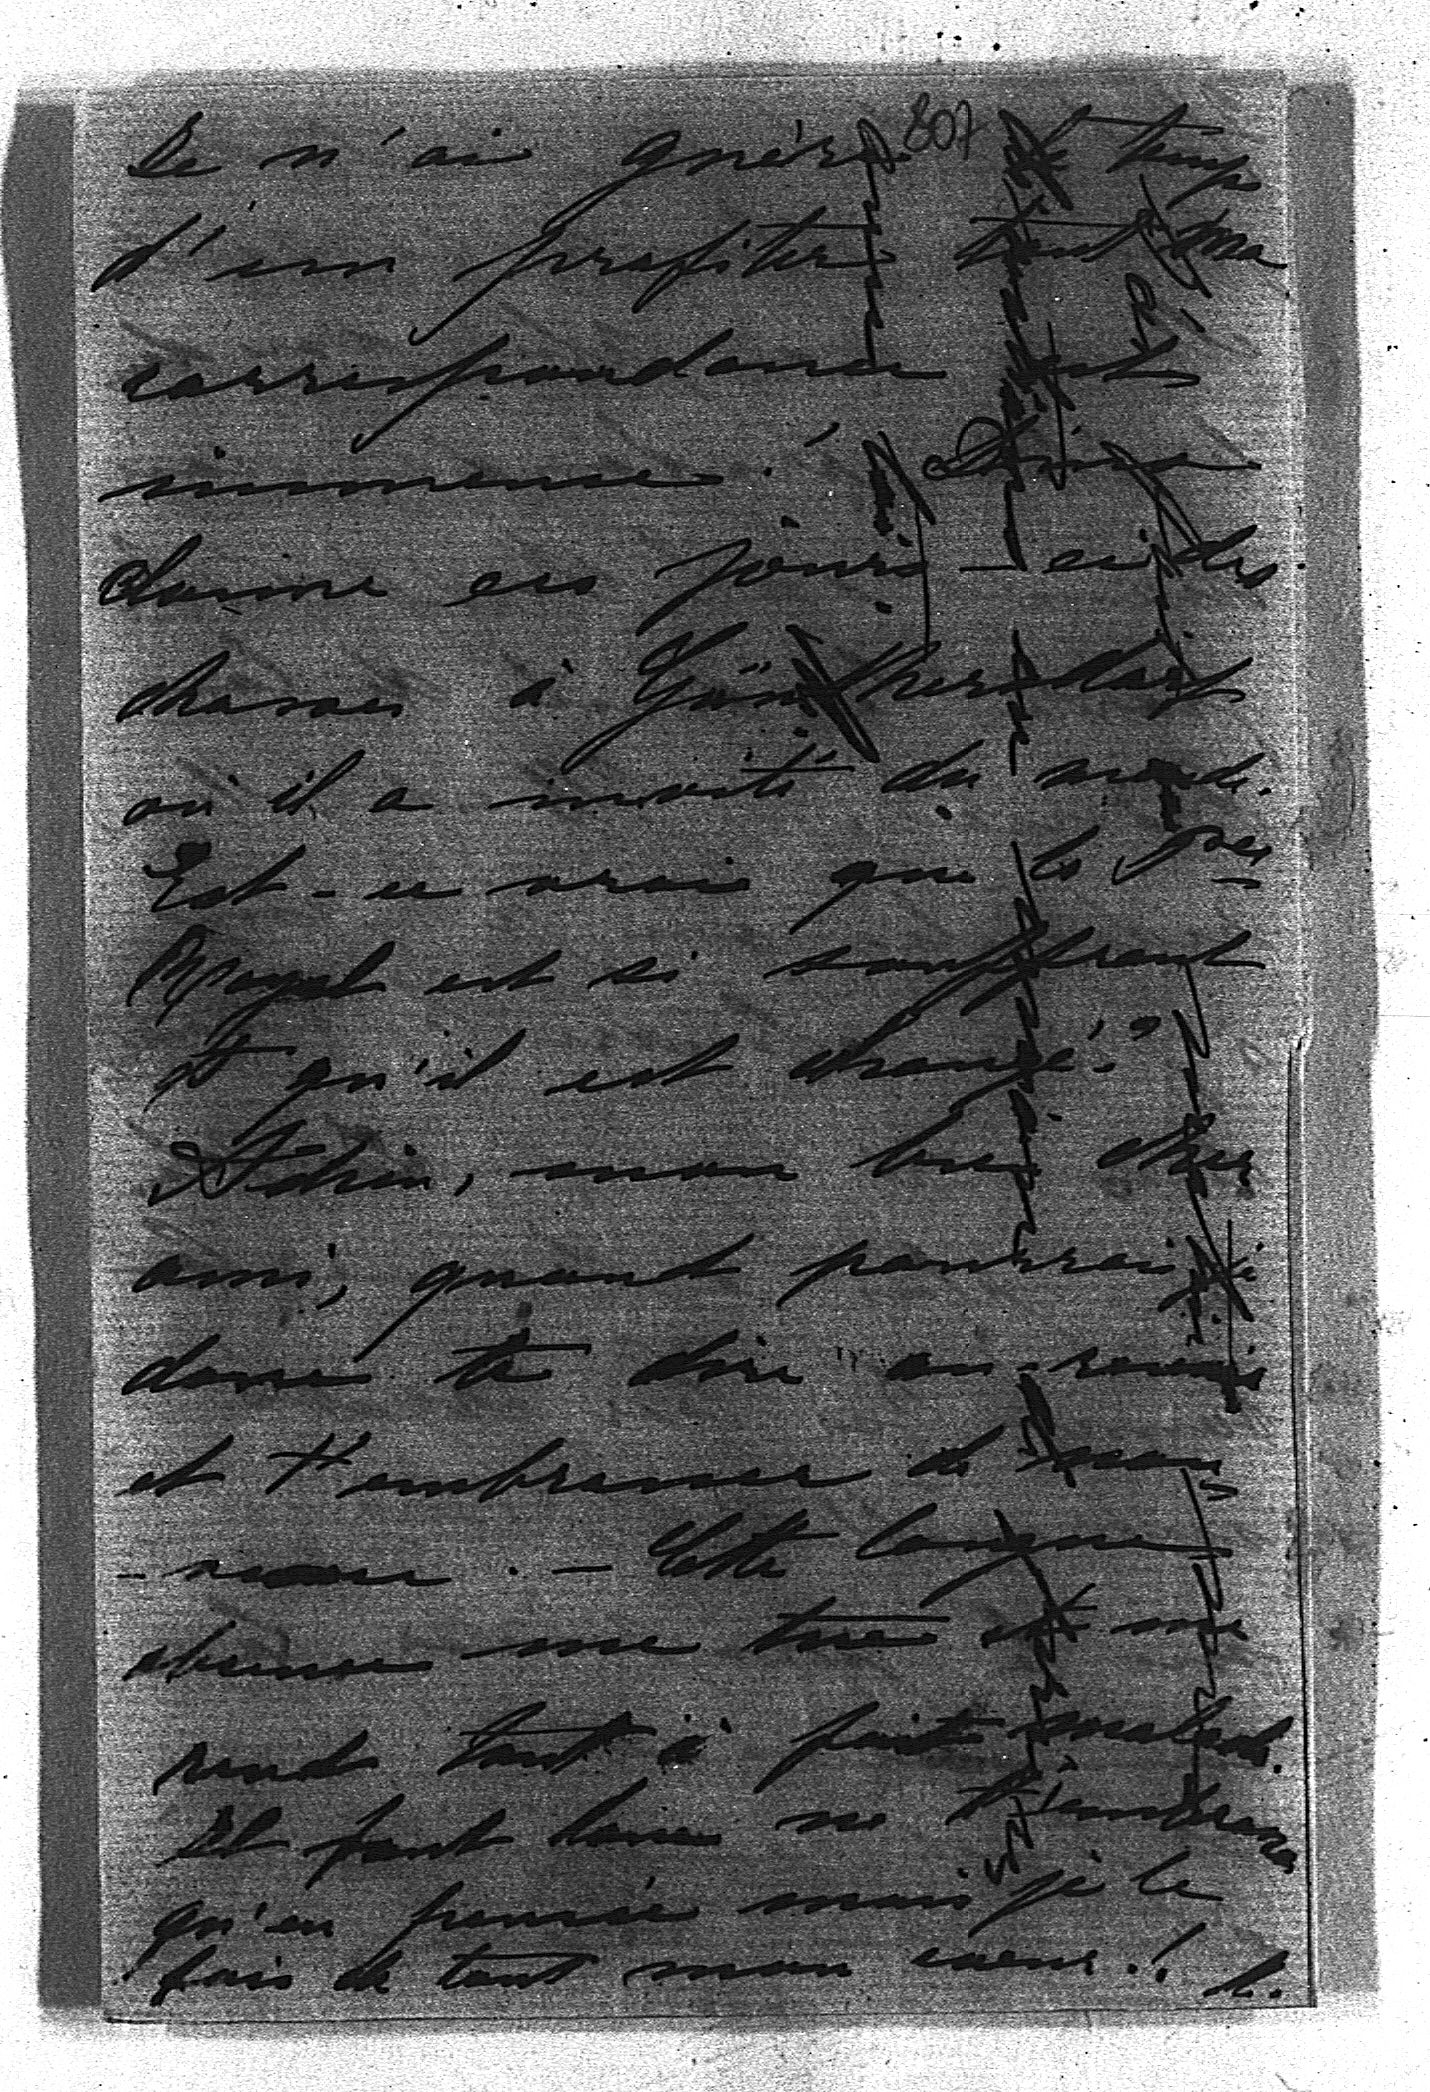 807
Je n'ai guère le temps
d'en profiter tant ma
correspondance est
immense!
donne ces jours-ci des
chasses à Günthersdorf
où il a invité du monde.
Est-ce vrai que le Pce
Royal est si souffrant
et qu'il est changé?
mon bien cher
ami, quand pourrai-je
donc te dire au-revoir
et t'embrasser de nou-
-veau. - Cette longue
absence me tue et me
rend tout à fait malade.
Il faut donc ne t'embrasser
qu'en pensée mais je le
fais de tout mon coeur!